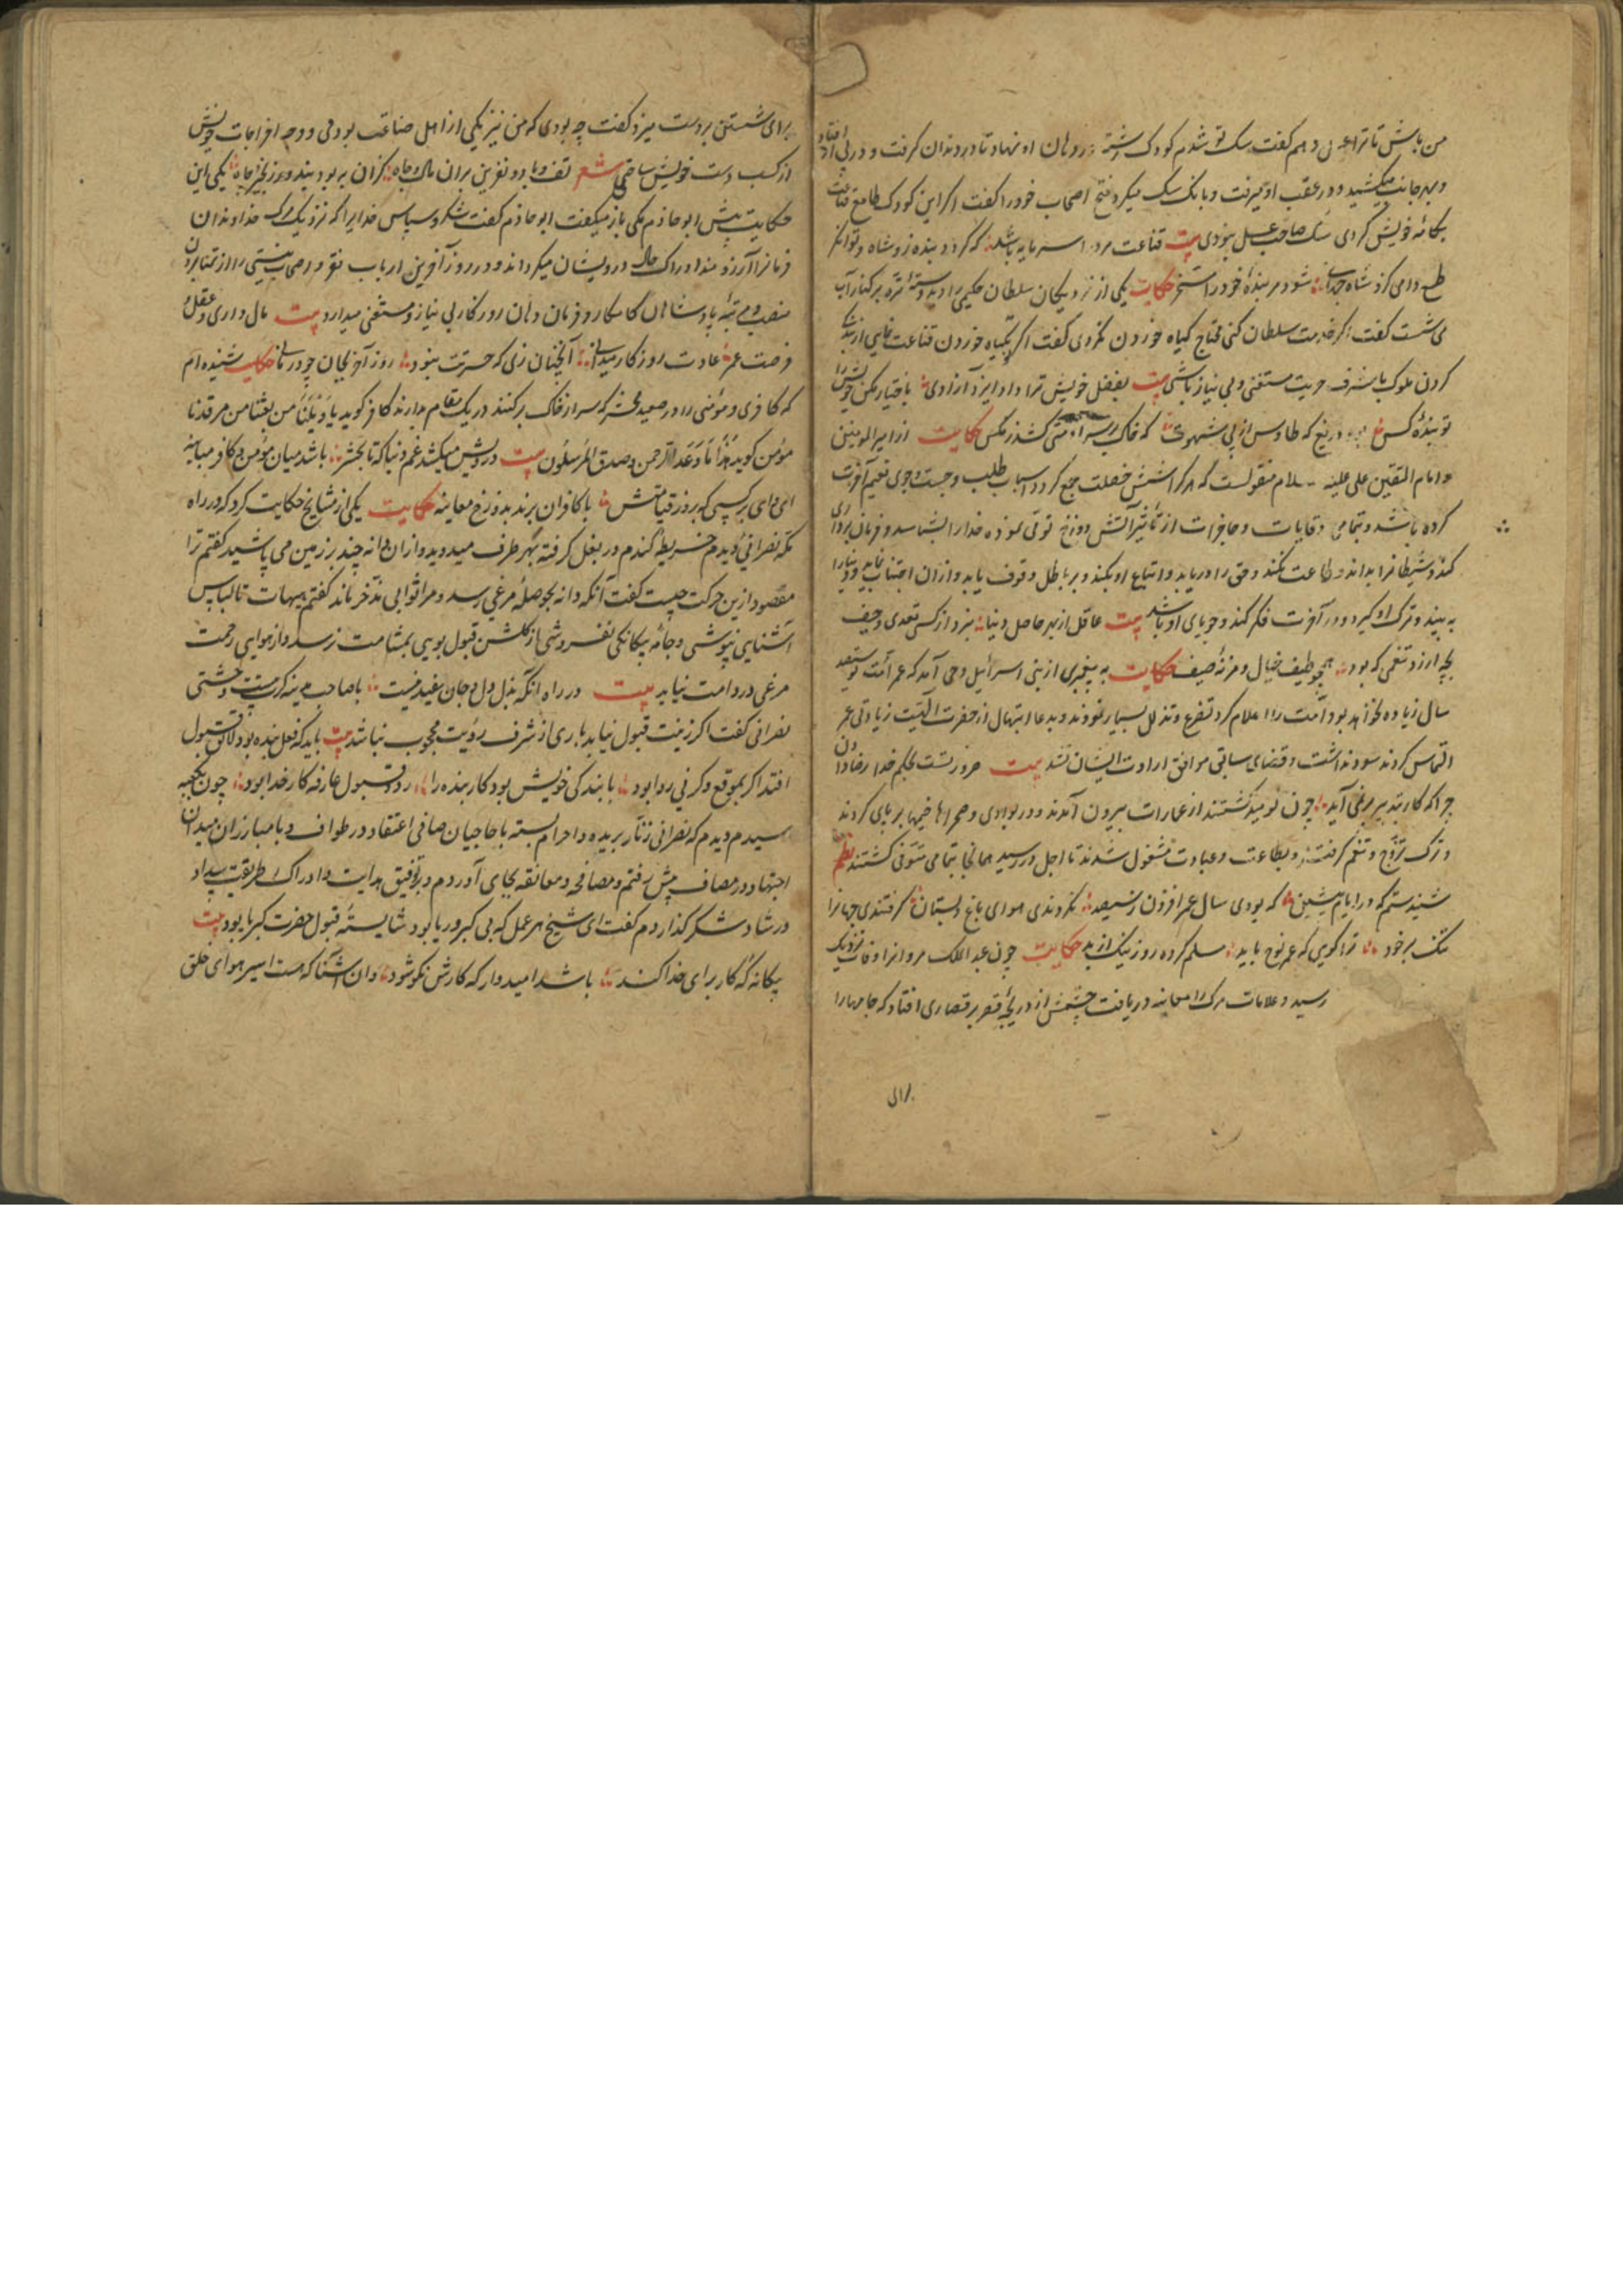 من باش تا ترا عسل دهم گفت سگ تو شدم کودک رشته در دهان او نهاد تا در دندان گرفت و در پی افتاد
و بهر جانب میکشید و در عقب او میرفت و بانگ سگ میکرد فتح اصحاب خود را گفت اگر این کودک طامع قناعت
بکامهٔ خویش کردی سگ صاحب عسل نبودی بیت قناعت مرد را سرمایه باشد که گردد بنده زو شاه و توانگر
طمع دامی کزو شاه جهان شود مر بندهٔ خود را مسخر حکایت یکی از نزدیکان سلطان حکیمی را دید دستهٔ تره بر کنار آب
می شست گفت اگر خدمت سلطان کنی محتاج گیاه خوردن نگردی گفت اگر بگیاه خوردن قناعت نمایی از بندگی
کردن ملوک با شرف حریت مستغنی و بی نیاز باشی بیت بفضل خویش ترا داد ایزد آزادی باختیار مکن خویش را
تو بندهٔ کس دریغ که طاوس از پی شهوت که خاک بر سر او منتی کشد ز مگس حکایت از امیر المومنین
و امام المتقین علی علیه السلام منقولست که هر که شش خصلت جمع کرد در اسباب طلب و جست و جوی نعیم آخرت
کرده باشد و بتمامی وقایات و حاجزات از تأثیر آتش دوزخ توقی نموده خدا را بشناسد و فرمان برداری
کند و شیطانرا بداند و طاعت نکند و حق را دریابد و اتباع او بکند و بر باطل وقوف یابد و از آن اجتناب نماید و دنیا را
به بیند و ترک او گیرد و در آخرت فکر کند و جویای او باشد بیت عاقل از بهر حاصل دنیا نبرد از کسی تعدی و حیف
بچه ارزد تنعمی که بود همچو طیف خیال و مزنهٔ صیف حکایت به پیغمبری از بنی اسرائیل وحی آمد که عمر امت تو سیصد
سال زیاده نخواهد بود امت را اعلام کرد تضرع و تذلل بسیار نمودند و بدعا و ابتهال از حضرت الهیت زیادتی عمر
التماس کردند سود نداشت و قضای سابق موافق ارادت ایشان نشد بیت ضرورتست بحکم خدا رضا دادن
چرا که کار بتدبیر بر نمی آید چون نومید گشتند از عمارات بیرون آمدند و در بوادی و صحراها خیمها بر پای کردند
و ترک تزوج و تنعم گرفتند و بطاعت و عبادت مشغول شدند تا اجل در رسید همانجا بتمامی متوفی گشتند نظم
شنیدستم که در ایام پیشین که بودی سال عمر افزون ز سیصد نکردندی هوای باغ و بستان گرفتندی جهانرا
تنگ بر خود ترا گویی که عمر نوح باید مسلم کرده روز نیک از بد حکایت چون عبد الملک مروانرا وفات نزدیک
رسید و علامات مرگ را معاینه دریافت چشمش از دریچهٔ قصر بر قصاری افتاد که جامها را
برای
برای شستن بر دست میزد گفت چه بودی که من نیز یکی از اهل صناعت بودمی و وجه اخراجات خویش
از کسب دست خویش ساختمی شعر تف و باد و نفرین بران مال و جاه کزان به بود بیند روز بخیز جاه یکی این
حکایت پیش ابو حازم مکی باز میگفت ابو حازم گفت شکر و سپاس خدایرا که نزدیک مرگ خداوندان
فرمانرا آرزومند ادراک حال درویشان میگرداند و در روز آخرین ارباب فقر و اصحاب نیستی را از تمنا بردن
منصب و مرتبهٔ پادشاهان کامکار و فرمان دهان روزگار بی نیاز و مستغنی میدارد بیت مال داری و عقل و
فرصت عمر عادت روزگار میدانی آنچنان زی که حسرتت نبود روز آخر بجان چو درمانی حکایت شنیده ام
که کافری و مؤمنی را در صعید محشر که سر از خاک بر کنند در یک مقام بدارند کافر گوید یا وَیْلَنَا من بعثنا من مرقدنا
مؤمن گوید هَذَا مَا وَعَدَ الرحمن وصدق المُرسَلُون بیت درویش میکشد غم دنیا که تا بحشر باشد میان مؤمن و کافر مباینه
ای وای بر کسی که بروز قیامتش با کافران برند بدوزخ معاینه حکایت یکی از مشایخ حکایت کرد که در راه
مکه نصرانی دیدم خریطهٔ گندم در بغل گرفته بهر طرف میدوید و از ان دانه چند بر زمین می پاشید گفتم ترا
مقصود ازین حرکت چیست گفت آنکه دانه بحوصلهٔ مرغی رسد و مرا ثوابی مدّخر ماند گفتم هیهات تا لباس
آشنایی نپوشی و جامهٔ بیگانگی نفروشی از گلشن قبول بویی بمشامت نرسد و از هوای رحمت
مرغی در دامت نیاید بیت در راه آنکه بذل دل و جان مفید نیست با صاحب مدینه کرمیست وحشتی
نصرانی گفت اگر زینت قبول نیابد باری از شرف رؤیت محجوب نباشد بیت باید که فعل بنده بود لائق قبول
افتد اگر بموقع وگرنی روا بود با بندگی خویش بود کار بنده را رد و قبول عارفه کار خدا بود چون بکعبه
رسیدم دیدم که نصرانی زنّار بریده و احرام بسته با حاجیان صافی اعتقاد در طواف و با مبارزان میدان
اجتهاد در مصاف پیش رفتم و مصافحه و معانقه بجای آوردم و بر توفیق هدایت و ادراک طریقت سداد
و رشاد شکر گذاردم گفت ای شیخ هر عمل که بی کبر و ریا بود شایستهٔ قبول حضرت کبریا بود بیت
بیگانه گر کار برای خدا کند باشد امیدوار که کارش نکو شود وان آشنا که هست اسیر هوای خلق